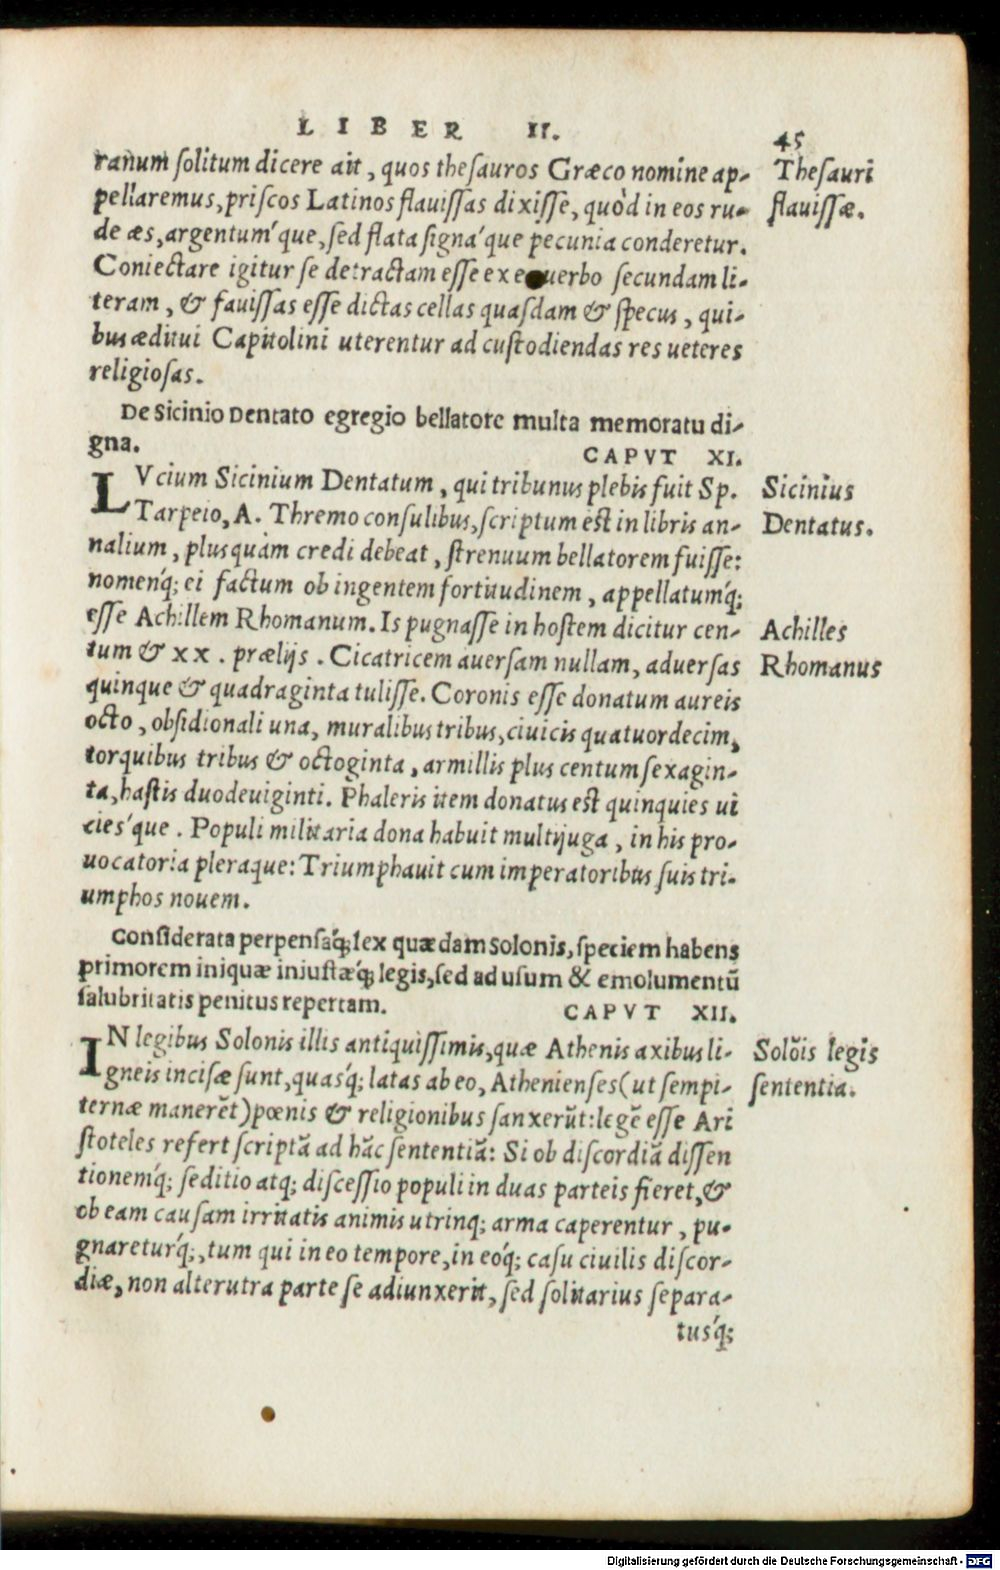 LIBER II. 45
ranum solitum dicere ait, quos thesauros Græco nomine ap-
pellaremus, priscos Latinos flauissas dixisse, quòd in eos ru-
de æs, argentum'que, sed flata signa'que pecunia conderetur.
Coniectare igitur se detractam esse ex e uerbo secundam li-
teram, & fauissas esse dictas cellas quasdam & specus, qui-
bus æditui Capitolini uterentur ad custodiendas res ueteres
religiosas.
Thesauri
flauissæ.
De Sicinio Dentato egregio bellatore multa memoratu di-
gna. CAPVT XI.
LVcium Sicinium Dentatum, qui tribunus plebis fuit Sp.
Tarpeio, A. Thremo consulibus, scriptum est in libris an-
nalium, plus quàm credi debeat, strenuum bellatorem fuisse:
nomen'q; ei factum ob ingentem fortitudinem, appellatum'q;
esse Achillem Rhomanum. Is pugnasse in hostem dicitur cen-
tum & xx. prælijs. Cicatricem auersam nullam, aduersas
quinque & quadraginta tulisse. Coronis esse donatum aureis
octo, obsidionali una, muralibus tribus, ciuicis quatuordecim,
torquibus tribus & octoginta, armillis plus centum sexagin-
ta, hastis duodeuiginti. Phaleris item donatus est quinquies ui
cies'que. Populi militaria dona habuit multijuga, in his pro-
uocatoria pleraque: Triumphauit cum imperatoribus suis tri-
umphos nouem.
Sicinius
Dentatus.
Achilles
Rhomanus
Considerata perpensa'q; lex quædam Solonis, speciem habens
primorem iniquæ iniustæ'q; legis, sed ad usum & emolumentū
salubritatis penitus repertam. CAPVT XII.
IN legibus Solonis illis antiquissimis, quæ Athenis axibus li-
gneis incisæ sunt, quas'q; latas ab eo, Athenienses (ut sempi-
ternæ manerēt) pœnis & religionibus sanxerūt: legē esse Ari
stoteles refert scriptā ad hāc sententiā: Si ob discordiā dissen
tionem'q; seditio atq; discessio populi in duas parteis fieret, &
ob eam causam irritatis animis utrinq; arma caperentur, pu-
gnaretur'q;, tum qui in eo tempore, in eo'q; casu ciuilis discor-
diæ, non alterutra parte se adiunxerit, sed solitarius separa-
tus'q;
Solōis legis
sententia.
Digitalisierung gefördert durch die Deutsche Forschungsgemeinschaft - DFG